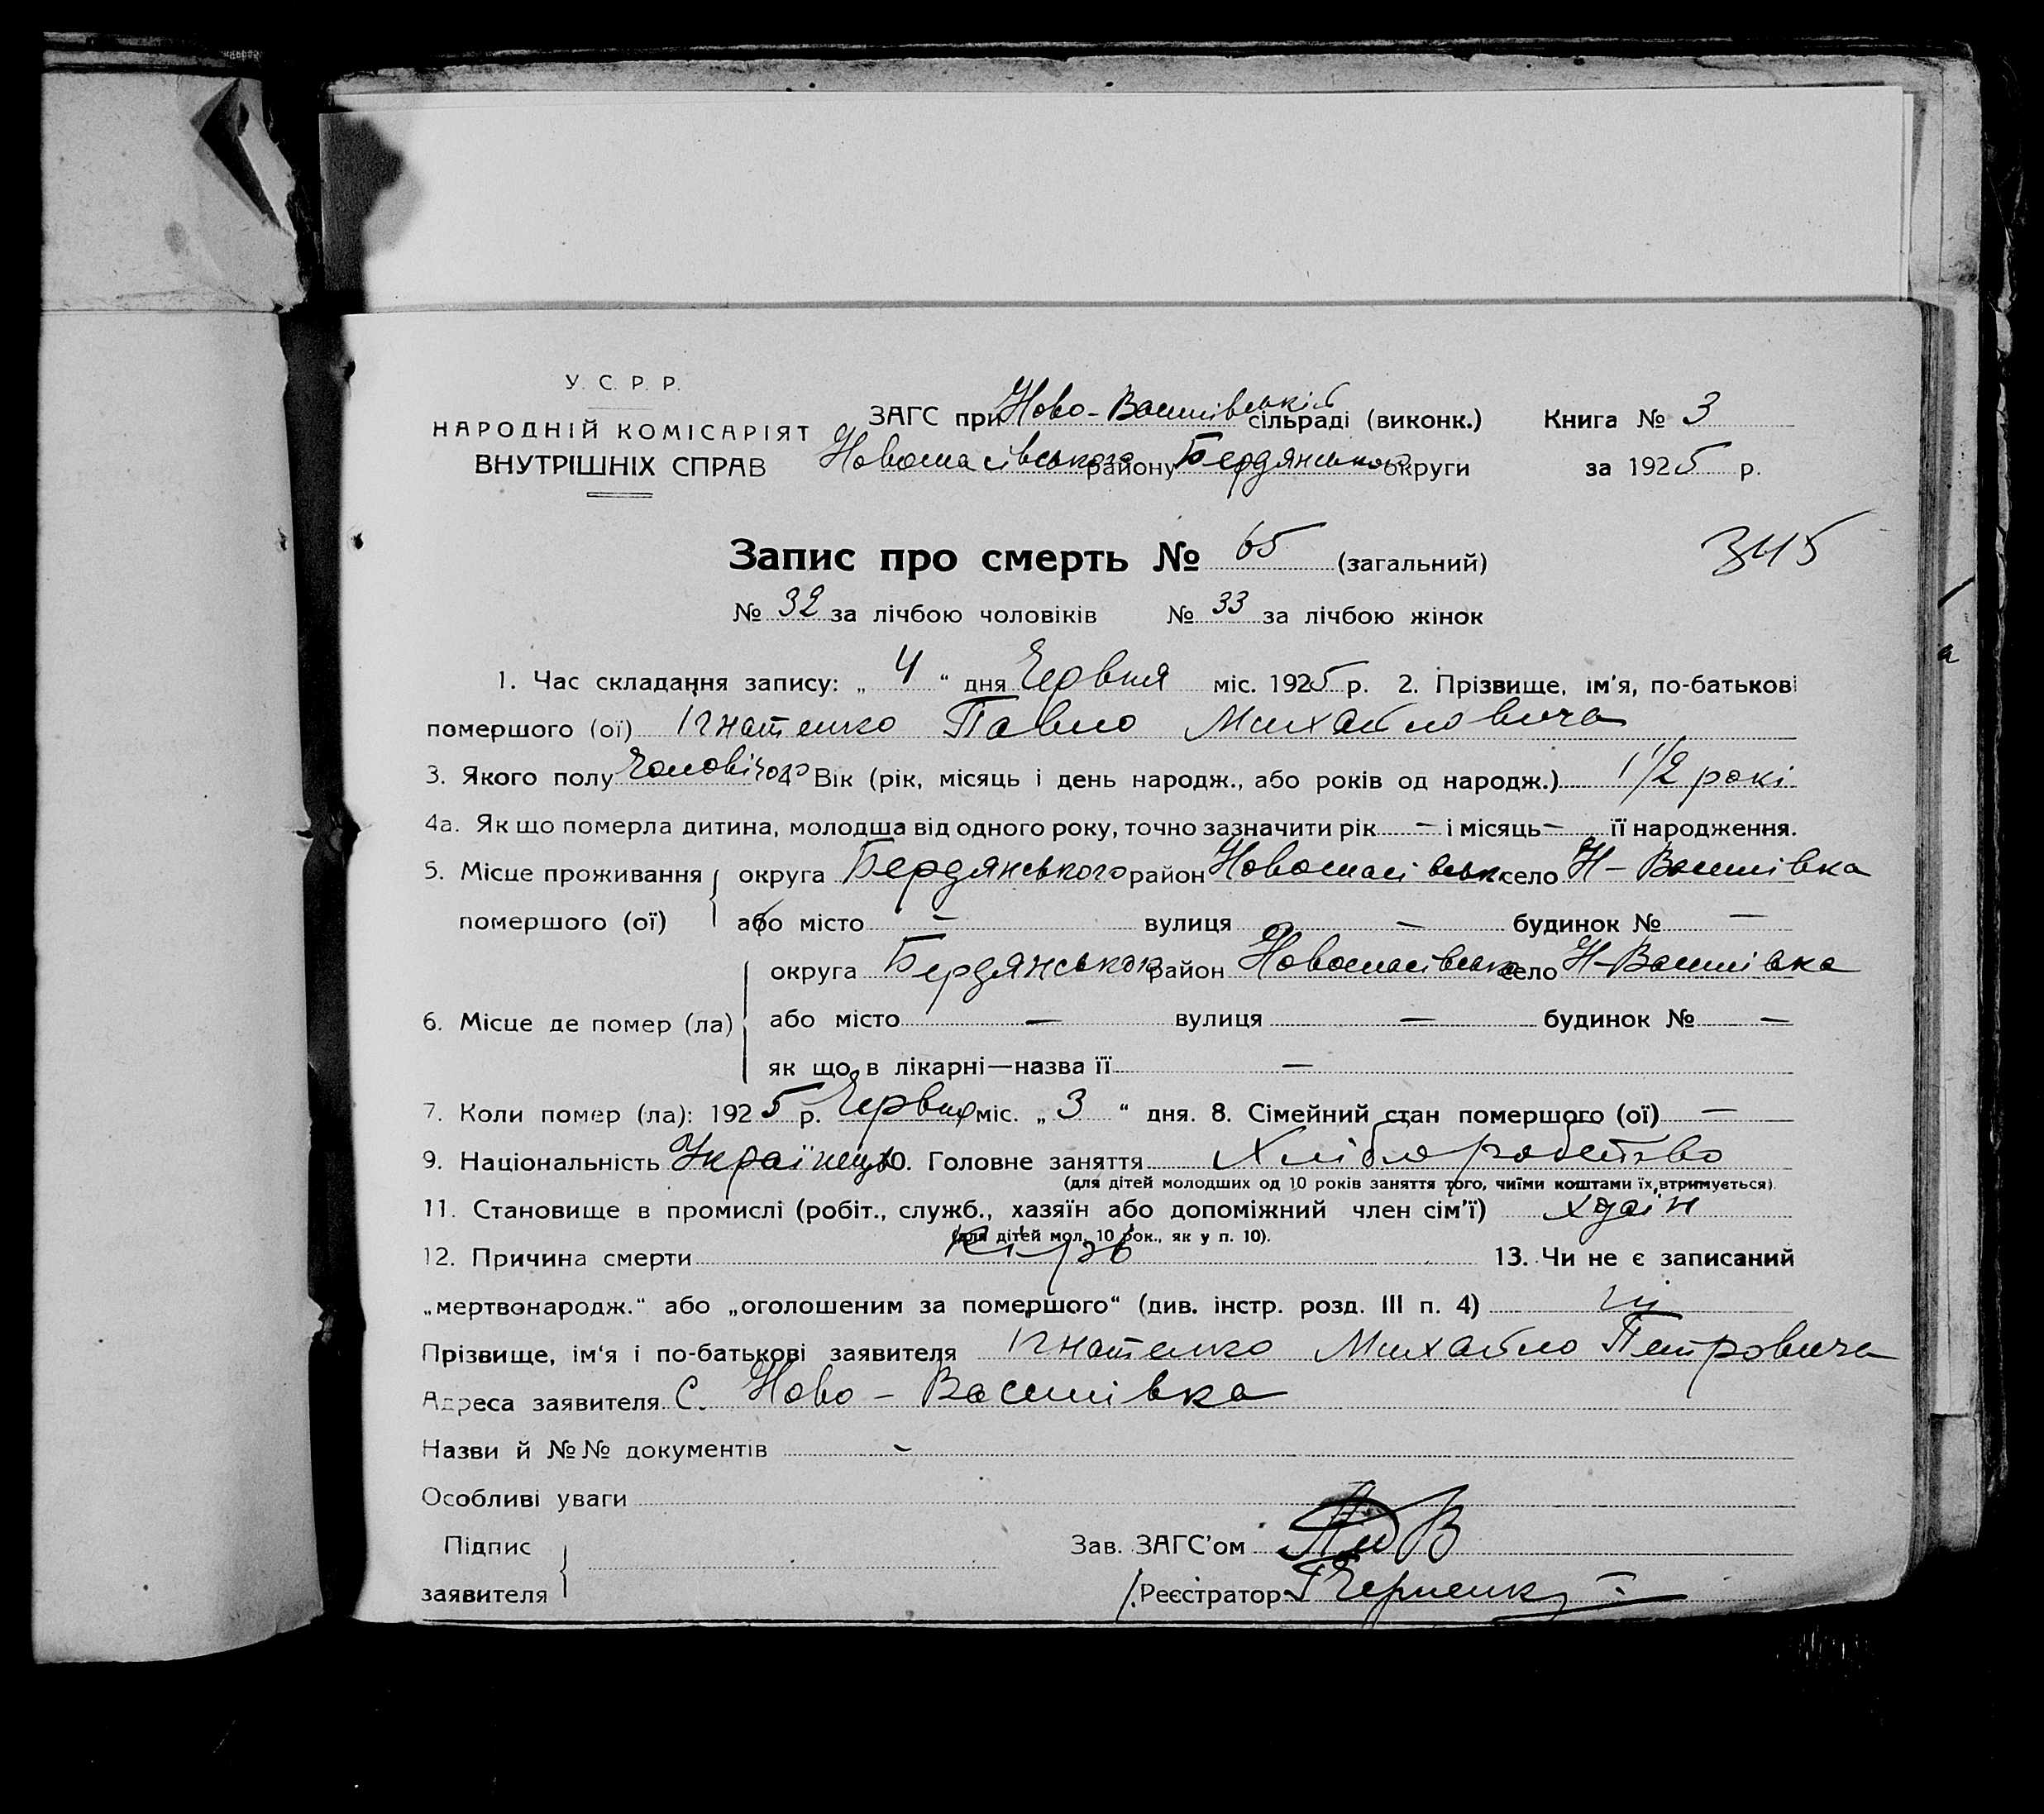 У. С. Р. Р.
НАРОДНІЙ КОМІСАРІЯТ
ВНУТРІШНІХ СПРАВ
ЗАГС при Ново-Василівській сільраді (виконк.) Книга № 3
Новоспасівського району Бердянської округи за 1925 р.
Запис про смерть № 65 (загальний)
345
№ 32 за лічбою чоловіків № 33 за лічбою жінок
1. Час складання запису: „ 4 “ дня Червня міс. 1925 р. 2. Прізвище, ім'я, по-батькові
помершого (ої) Ігнатенко Павло Михайловича
3. Якого полу Чоловічого 4. Вік (рік, місяць і день народж., або років од народж.) 1 1/2 рокі
4а. Як що померла дитина, молодша від одного року, точно зазначити рік — і місяць — її народження.
5. Місце проживання помершого (ої) округа Бердянського район Новоспасівськ село Н-Василівка
або місто — вулиця — будинок № —
6. Місце де помер (ла) округа Бердянсько район Новоспасівсько село Н-Василівка
або місто — вулиця — будинок № —
як що в лікарні—назва її —
7. Коли помер (ла): 1925 р. Червня міс. „ 3 “ дня. 8. Сімейний стан помершого (ої) —
9. Національність Українець 10. Головне заняття Хліборобство
(для дітей молодших од 10 років заняття того, чиїми коштами їх втримується).
11. Становище в промислі (робіт., служб., хазяїн або допоміжний член сім'ї)
(для дітей мол. 10 рок., як у п. 10).
12. Причина смерти Кір 13. Чи не є записаний
„мертвонародж.“ або „оголошеним за помершого“ (див. інстр. розд. III п. 4) ні
Прізвище, ім'я і по-батькові заявителя Ігнатенко Михайло Петровича
Адреса заявителя С. Ново - Василівка
Назви й №№ документів -
Особливі уваги
Підпис заявителя
Зав. ЗАГС'ом
Реєстратор